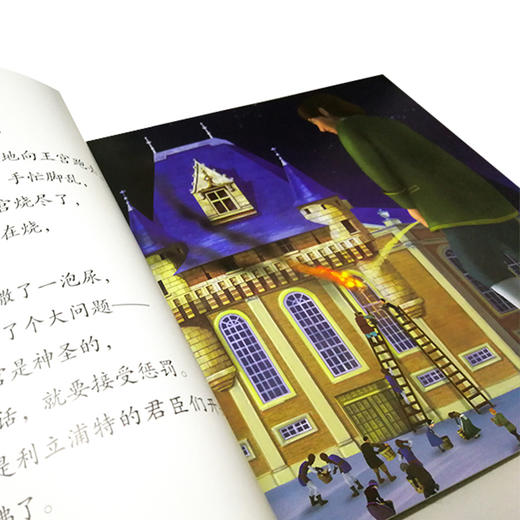 地向王宫跑
手忙脚乱，
宫烧尽了，
在烧，
撒了一泡尿，
了个大问题——
宫是神圣的，
话，就要接受惩罚。
是利立浦特的君臣们
沸了。